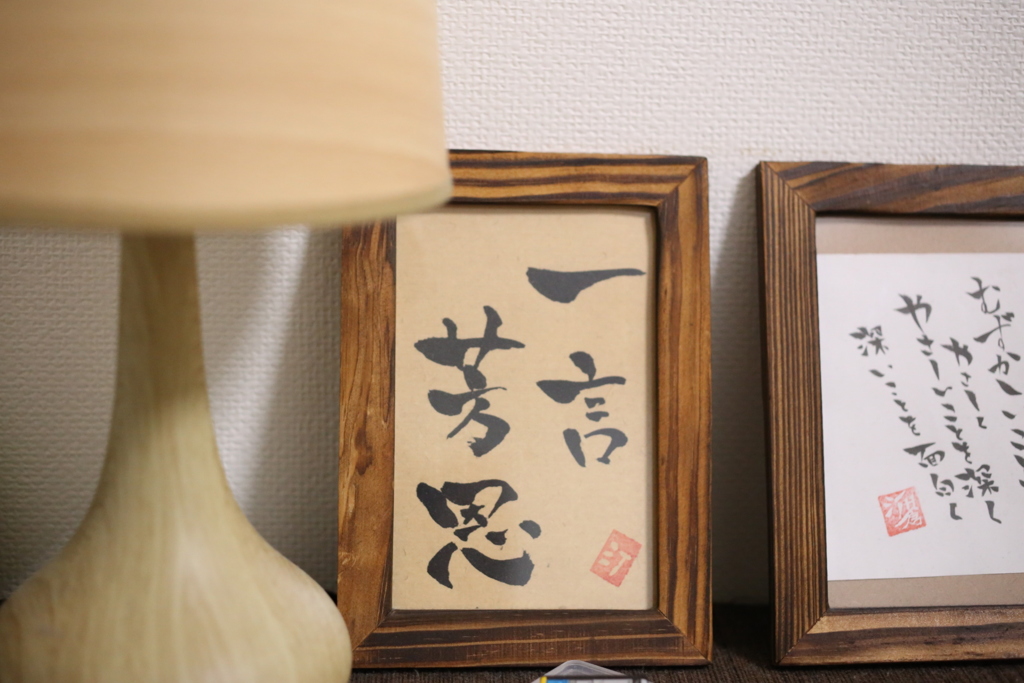 一言
芳恩
むずかしいこ
やさしく
やさしいことを
深く
深いことを
面白く